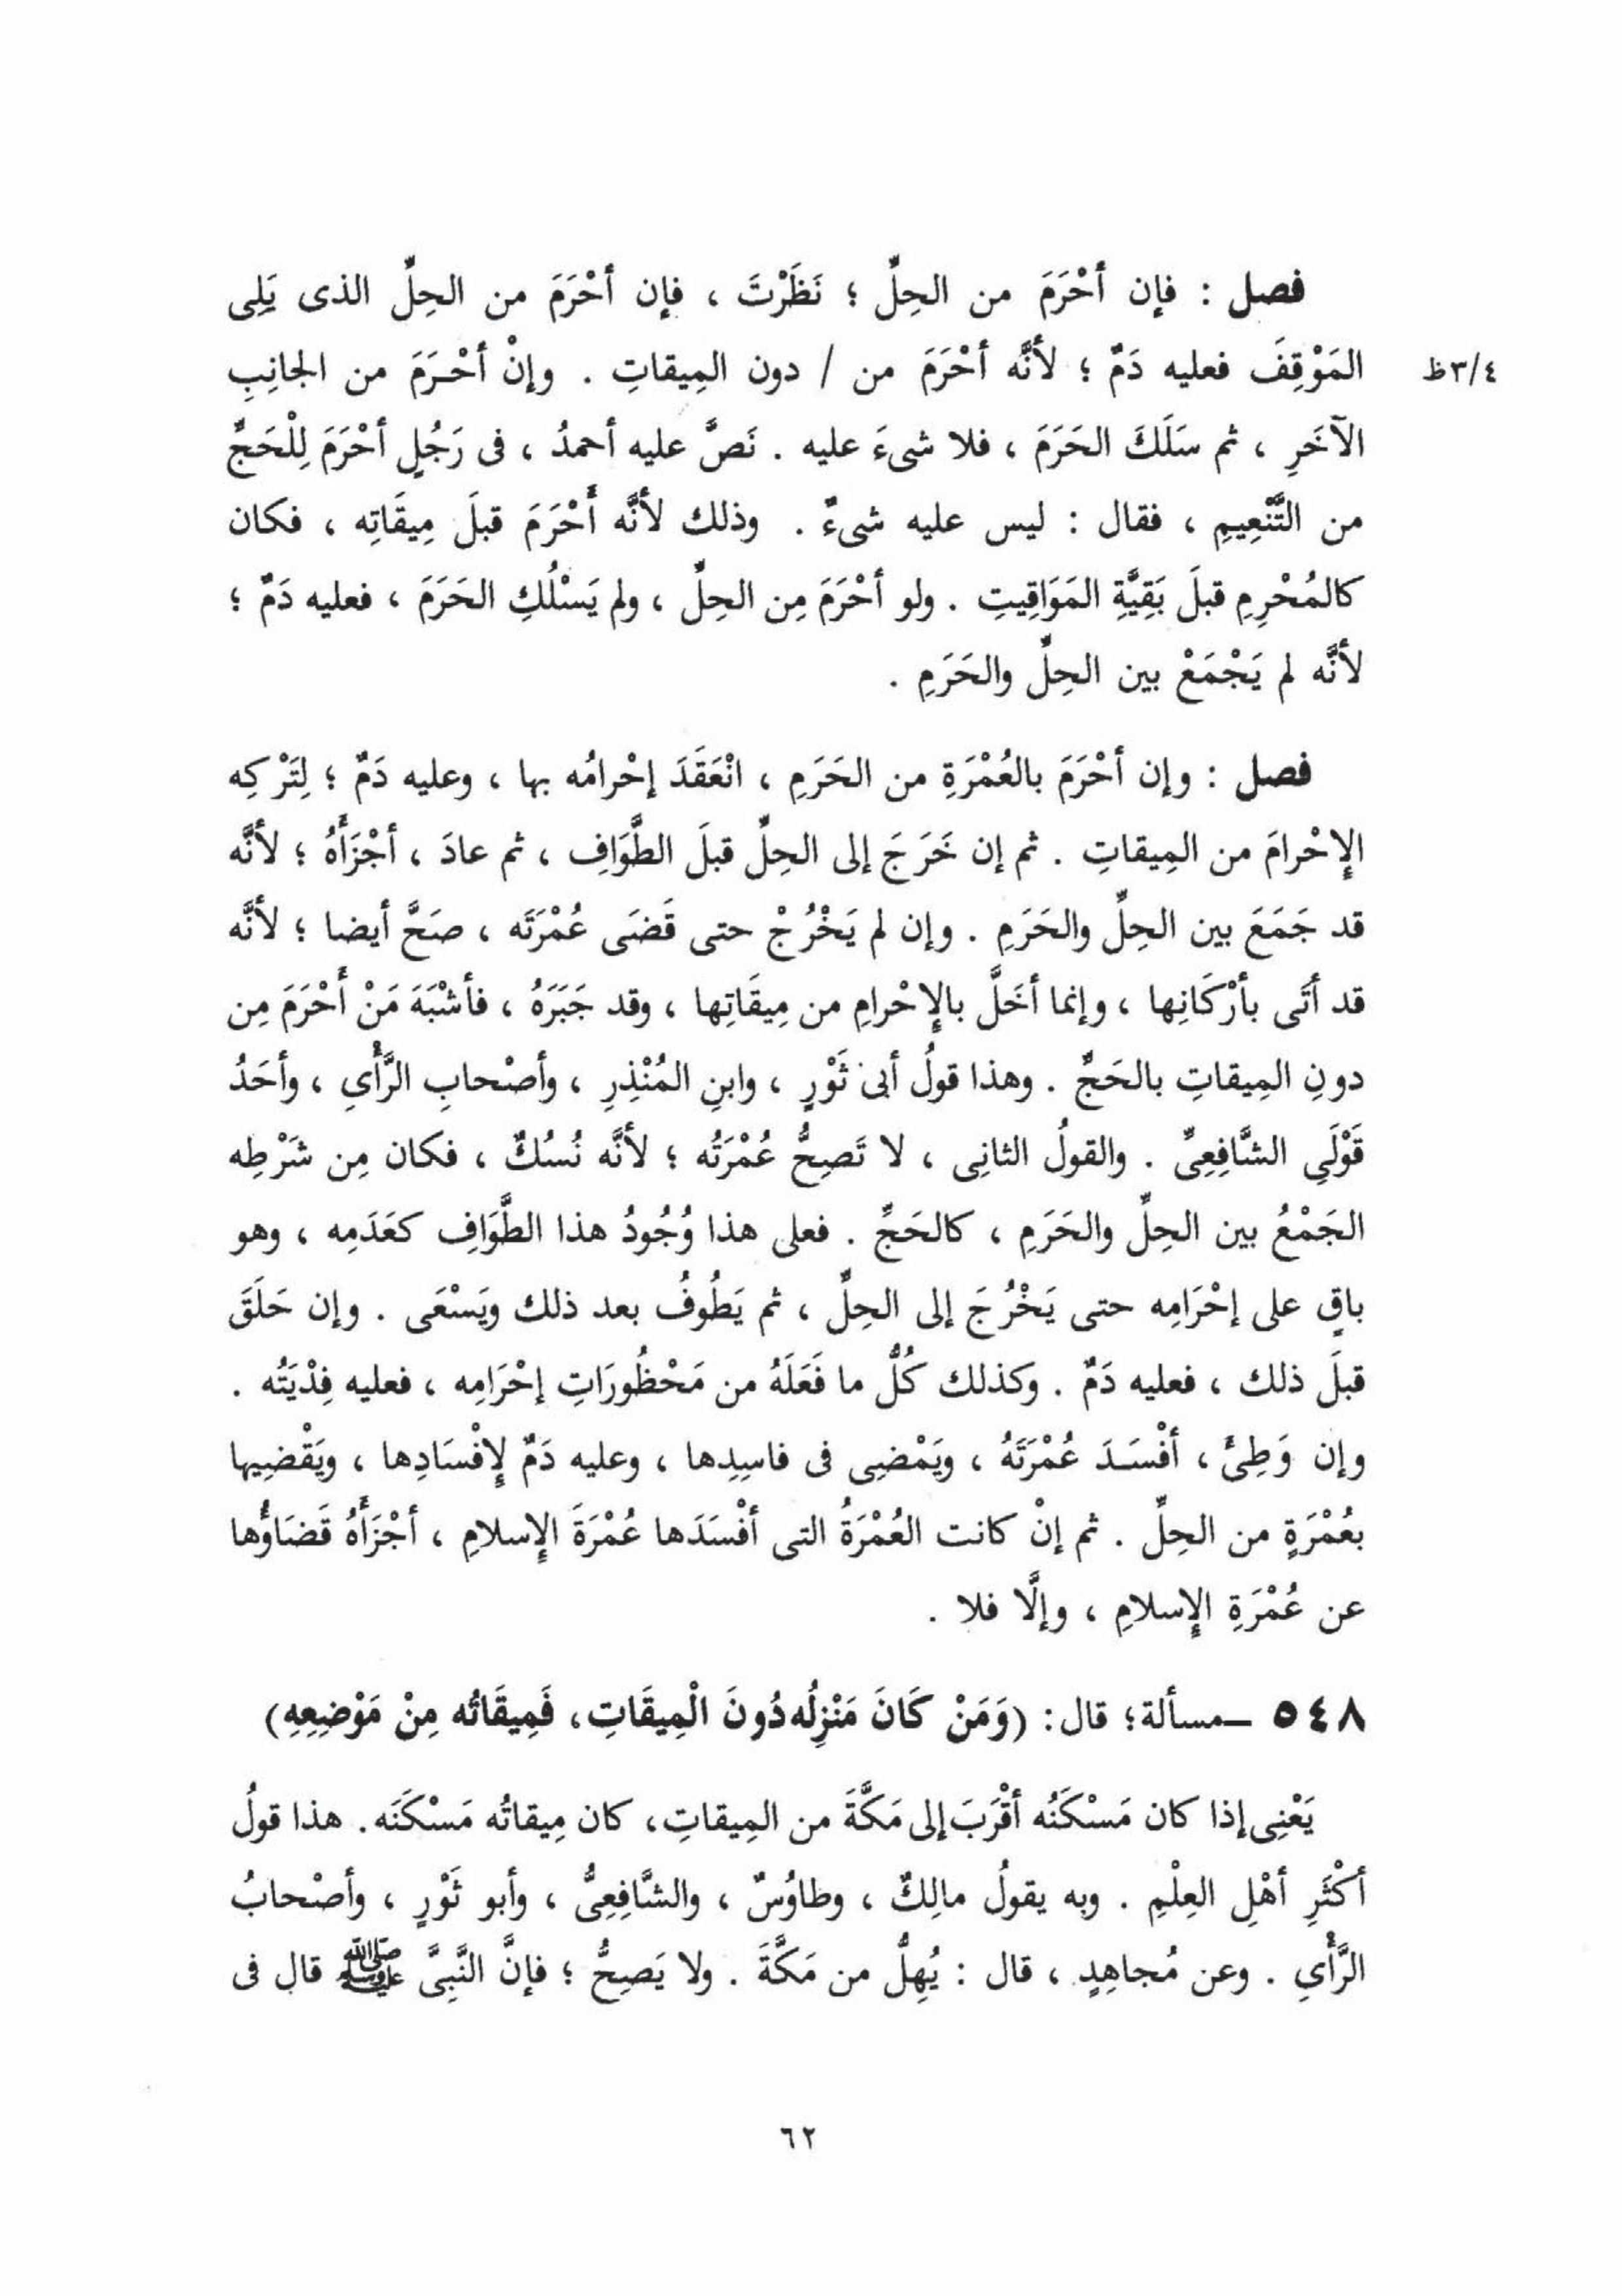 فصل : فإن أحْرَمَ من الحِلِّ ؛ نَظَرْتَ ، فإن أحْرَمَ من الحِلِّ الذى يَلِى
المَوْقِفَ فعليه دَمٌ ؛ لأنَّه أحْرَمَ من / دون المِيقاتِ . وإنْ أحْرَمَ من الجانِبِ
٣/٤ظ
الآخَرِ ، ثم سَلَكَ الحَرَمَ ، فلا شىءَ عليه . نَصَّ عليه أحمدُ ، فى رَجُلٍ أحْرَمَ لِلْحَجِّ
من التَّنْعِيمِ ، فقال : ليس عليه شىءٌ . وذلك لأنَّه أَحْرَمَ قبلَ مِيقَاتِه ، فكان
كالمُحْرِمِ قبلَ بَقِيَّةِ المَوَاقِيتِ . ولو أحْرَمَ مِن الحِلِّ ، ولم يَسْلُكِ الحَرَمَ ، فعليه دَمٌ ؛
لأنَّه لم يَجْمَعْ بين الحِلِّ والحَرَمِ .
فصل : وإن أحْرَمَ بالعُمْرَةِ من الحَرَمِ ، انْعَقَدَ إحْرامُه بها ، وعليه دَمٌ ؛ لِتَرْكِه
الإِحْرامَ من المِيقاتِ . ثم إن خَرَجَ إلى الحِلِّ قبلَ الطَّوَافِ ، ثم عادَ ، أجْزَأَهُ ؛ لأنَّه
قد جَمَعَ بين الحِلِّ والحَرَمِ . وإن لم يَخْرُجْ حتى قَضَى عُمْرَتَه ، صَحَّ أيضا ؛ لأنَّه
قد أتَى بأرْكَانِها ، وإنما أخَلَّ بالإِحْرامِ من مِيقَاتِها ، وقد جَبَرَهُ ، فأشْبَهَ مَنْ أَحْرَمَ مِن
دونِ المِيقاتِ بالحَجِّ . وهذا قولُ أبى ثَوْرٍ ، وابنِ المُنْذِرِ ، وأصْحابِ الرَّأْىِ ، وأحَدُ
قَوْلَىِ الشَّافِعِىِّ . والقولُ الثانِى ، لا تَصِحُّ عُمْرَتُه ؛ لأنَّه نُسُكٌ ، فكان مِن شَرْطِه
الجَمْعُ بين الحِلِّ والحَرَمِ ، كالحَجِّ . فعلى هذا وُجُودُ هذا الطَّوَافِ كعَدَمِه ، وهو
باقٍ على إحْرَامِه حتى يَخْرُجَ إلى الحِلِّ ، ثم يَطُوفُ بعد ذلك ويَسْعَى . وإن حَلَقَ
قبلَ ذلك ، فعليه دَمٌ . وكذلك كُلُّ ما فَعَلَهُ من مَحْظُورَاتِ إحْرَامِه ، فعليه فِدْيَتُه .
وإن وَطِئَ ، أفْسَدَ عُمْرَتَهُ ، ويَمْضِى فى فاسِدِها ، وعليه دَمٌ لِإفْسَادِها ، ويَقْضِيها
بعُمْرَةٍ من الحِلِّ . ثم إنْ كانت العُمْرَةُ التى أفْسَدَها عُمْرَةَ الإِسلامِ ، أجْزَأَهُ قَضَاؤُها
عن عُمْرَةِ الإِسلامِ ، وإلَّا فلا .
٥٤٨ – مسألة؛ قال: (وَمَنْ كَانَ مَنْزِلُه دُونَ الْمِيقَاتِ، فَمِيقَاتُه مِنْ مَوْضِعِهِ)
يَعْنِى إذا كان مَسْكَنُه أقْرَبَ إلى مَكَّةَ من المِيقاتِ، كان مِيقاتُه مَسْكَنَه. هذا قولُ
أكْثَرِ أهْلِ العِلْمِ . وبه يقولُ مالِكٌ ، وطاوُسٌ ، والشَّافِعِىُّ ، وأبو ثَوْرٍ ، وأصْحابُ
الرَّأْىِ . وعن مُجاهِدٍ ، قال : يُهِلُّ من مَكَّةَ . ولا يَصِحُّ ؛ فإنَّ النَّبِىَّ ﷺ قال فى
٦٢